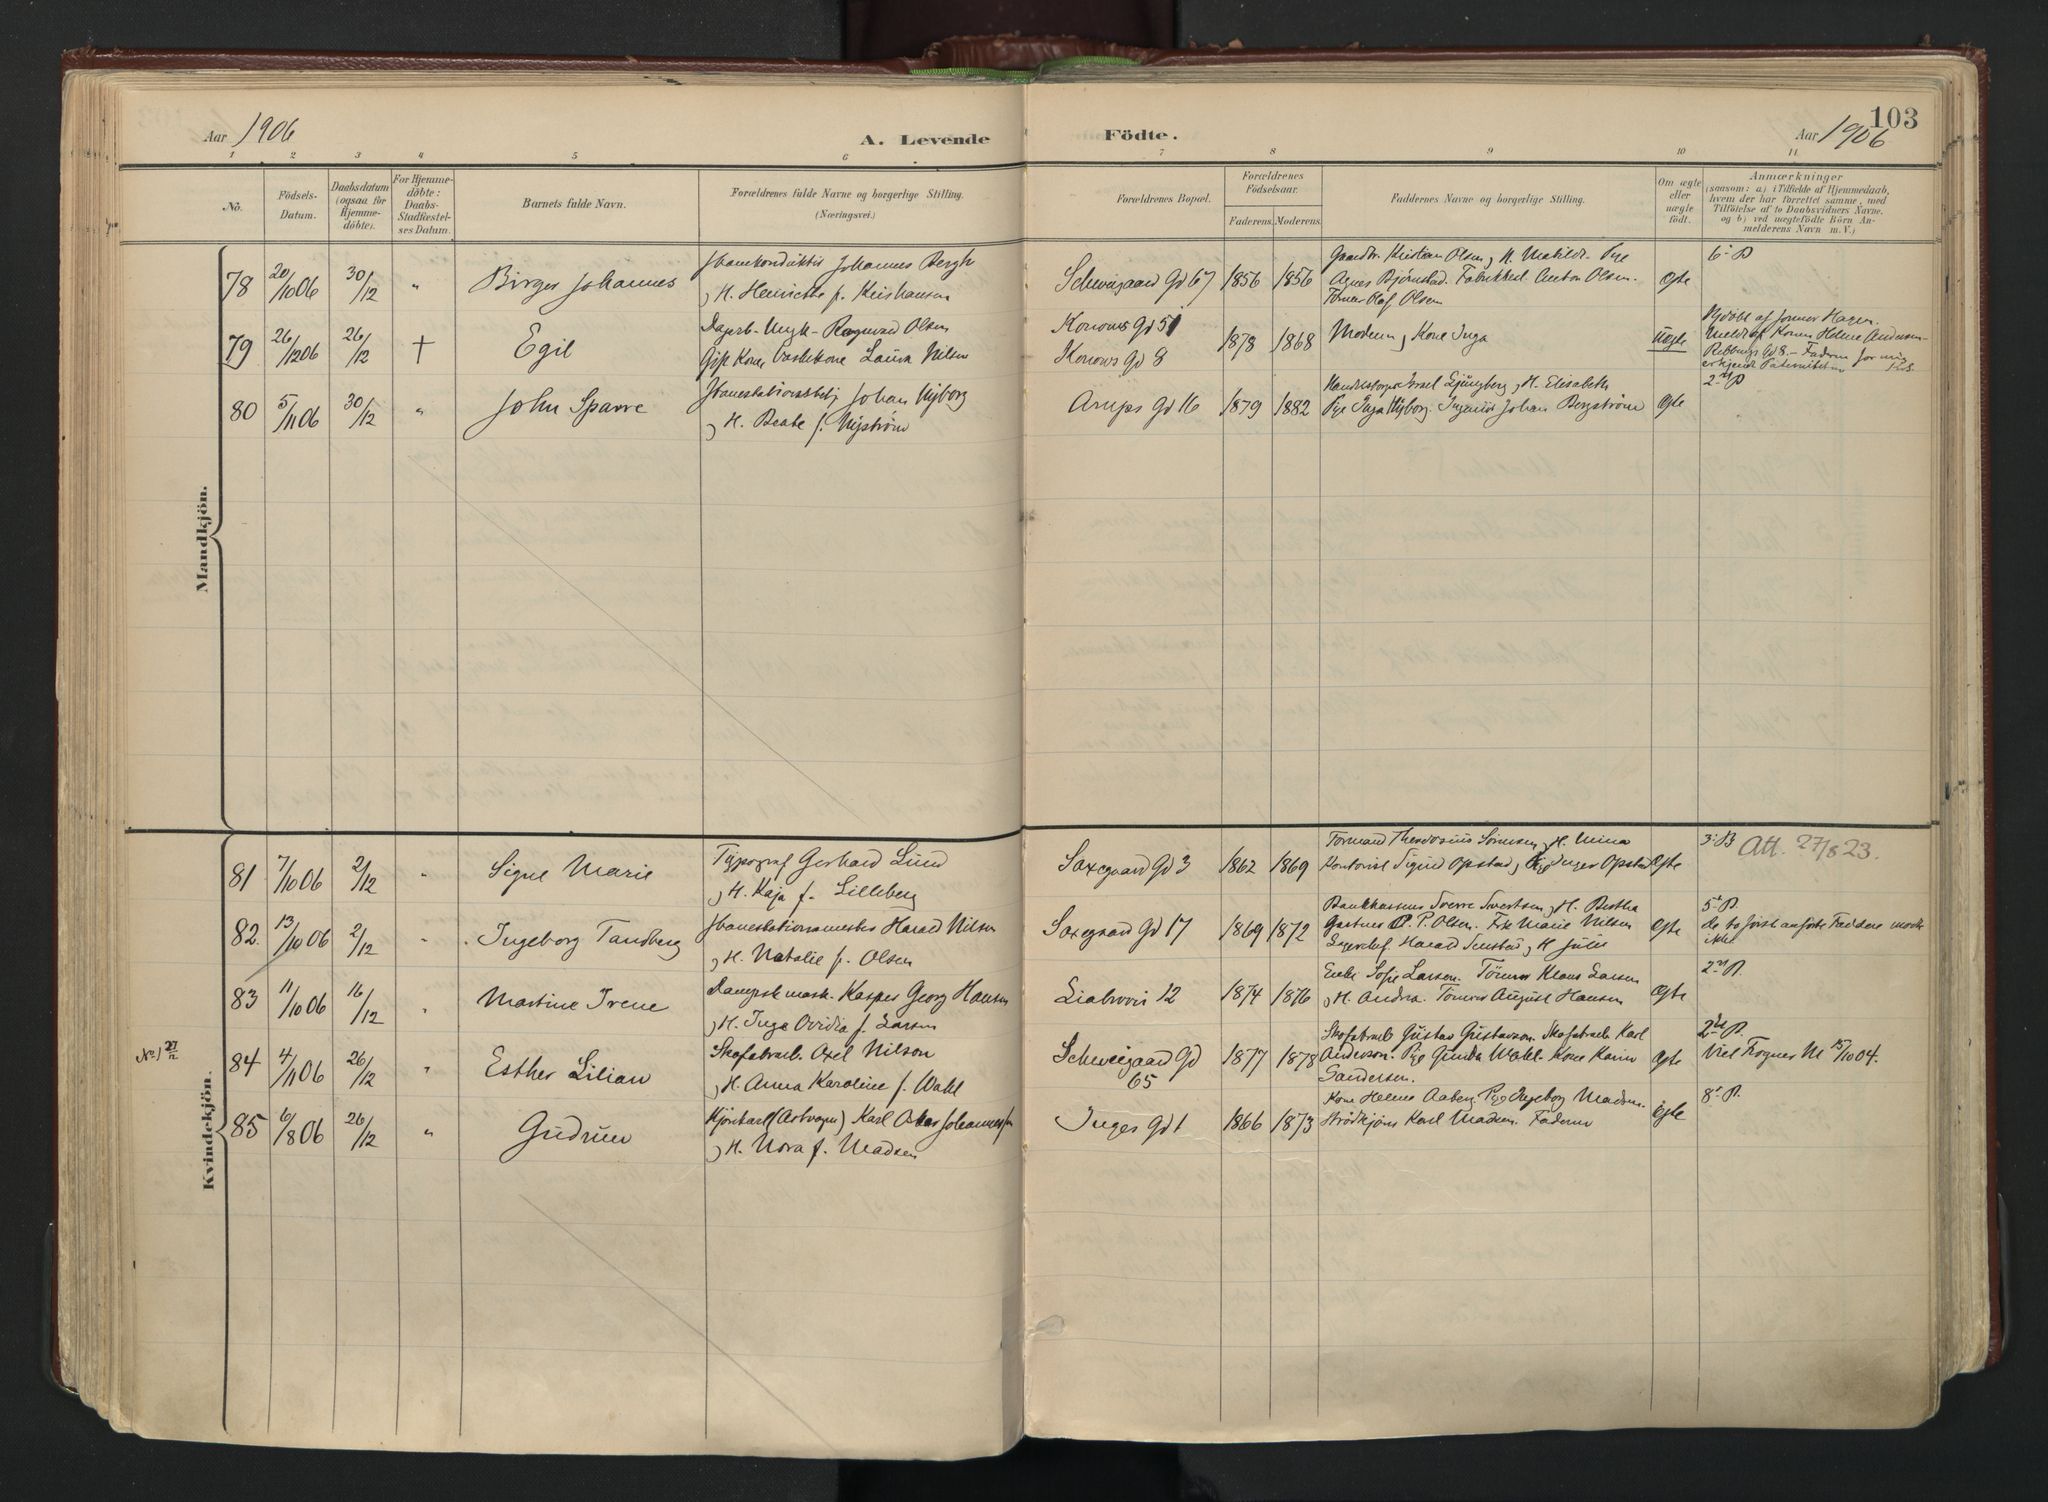 103
Aar 1906
A. Levende Födte.
Aar 1906
1 2 3 4 5 6 7 8 9 10 11
No.
Födsels-Datum.
Daabsdatum (ogsaa for Hjemme-döbte).
For Hjemme-döbte: Daabs-Stadfæstel-ses Datum.
Barnets fulde Navn.
Forældrenes fulde Navne og borgerlige Stilling.
(Næringsvei.)
Forældrenes Bopæl.
Forældrenes Födselsaar.
Faderens. Moderens.
Faddernes Navne og borgerlige Stilling.
Om ægte eller uægte födt.
Anmærkninger
(saasom: a) i Tilfælde af Hjemmedaab,
hvem der har forrettet samme, med
Tilföielse af to Daabsvidners Navne,
og b) ved uægtefödte Börn An-
melderens Navn m. V.)
Mandkjön.
78 20/10 06 30/12 " Birger Johannes
Johannes Bergh
, H. Henriette f. Kristiansen
Schweigaard Gd 67 1856 1856
Kristian Olsen, H. Mathilde. Pige
Agnes Bjørnstad. Anton Olsen.
Olaf Olsen
ægte
6-P
79 26/12 06 26/12 + Egil
Ragnvald Olsen
Gift Kone Laura Nilsen
Konows Gd 51
Konows Gd 8
1878 1868
Moderen, Kone Inga
uægte
Hjdøbt af Jormor Hagen.
Helene Andersen
Gd 8. – Faderen
Paterniteten
80 5/11 06 30/12 " John Sparre
Johan Nyborg
, H. Beate f. Nystrøm
Arups Gd 16 1879 1882
Ljungberg, H. Elisabeth
Pige Inga Nyborg. Ingeniør Johan Bergstrøm
ægte
2-P
Kvindekjön.
81 7/10 06 2/12 " Signe Marie
Typograf Gerhard Lund
, H. Kaja f. Lilleberg
Saxegaard Gd 3 1862 1869
Theodorius Sørensen, H. Mina
Kontorist Sigurd Opstad, Inger Opstad
ægte
3-P Att. 27/8 23.
82. 13/10 06 2/12 " Ingeborg Tandberg
Harald Nilsen
, H. Natalie f. Olsen
Saxegaard Gd 17 1869 1872
Sverre Sivertsen, H. Bertha
Gartner P. P. Olsen. Frk Marie Nilsen
Harald Senstad, H. Julie
ægte
5-P.
de to först anförte Faddere mödte
ikke
83 11/10 06 16/12 " Martine Irene
Kasper Georg Hansen
, H. Inga Ovidia f. Larsen
Liabrovn 12 1874 1876
Enke Sofie Larsen. Tömrer Klaus Larsen
, H. Andrea. Tömrer August Hansen
ægte
2-P.
No 1 27/12
84 4/11 06 26/12 " Esther Lilian
Skofabrarb. Axel Nilson
, H. Anna Karoline f. Wahl
Schweigaard Gd
65
1877 1878
Skofabrarb Gustav Gustavson. Skofabrarb Karl
Anderson. Pige Gunda Wahl. Kone Karen
Sandersen.
ægte
2-P.
Viet Frogner M 15/10 04.
85 6/8 06 26/12 " Gudrun
Karl Johannessen
, H. Nora f. Madsen
Inges Gd 1 1866 1873
Kone Helene Aaberg. Pige Ingeborg Madsen.
Karl Madsen. Faderen
ægte
8-P.